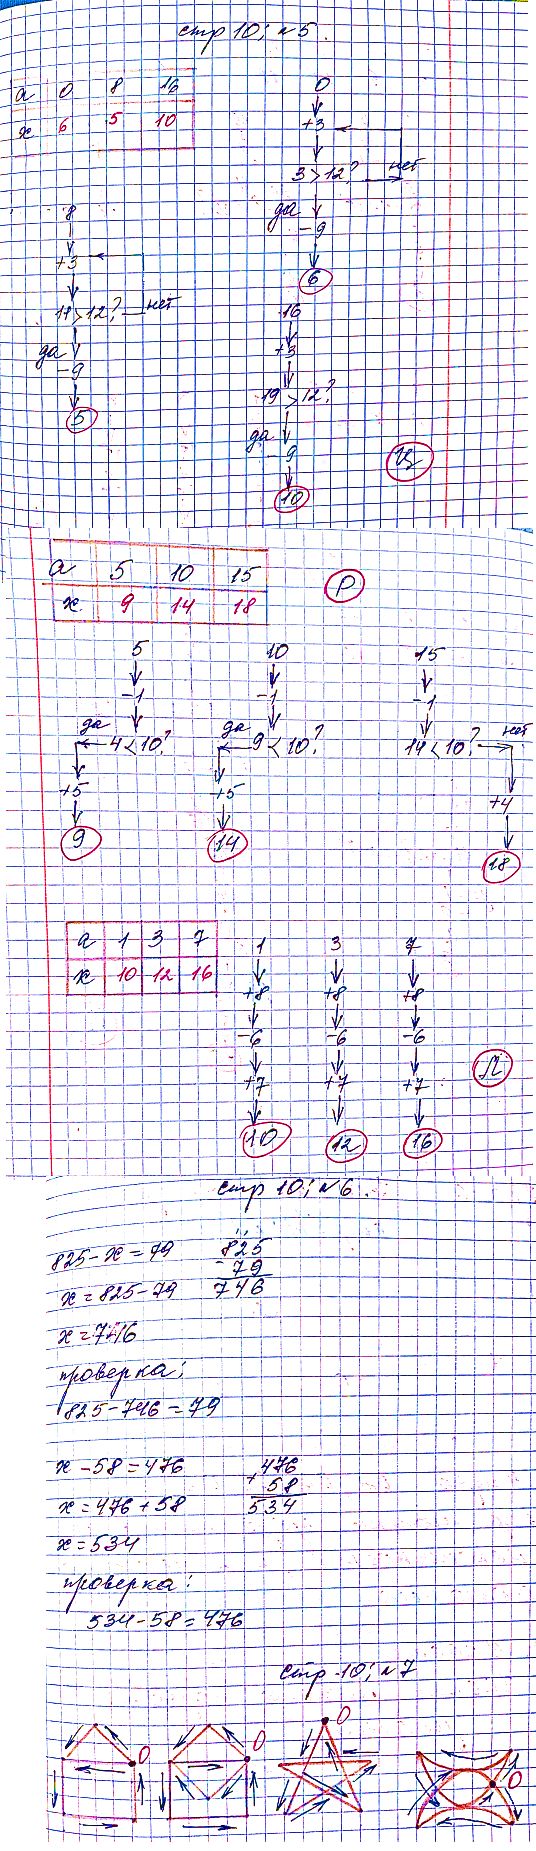 стр 10; №5.
а 0 8 16
х 6 5 10
0
+3
3 > 12? нет
да
-9
6
8
+3
11 > 12? нет
да
-9
5
16
+3
19 > 12?
да
-9
10
Ц
а 5 10 15
х 9 14 18
Р
5 10 15
-1 -1 -1
да 4 < 10? да 9 < 10? 14 < 10? нет
+5 +5 +4
9 14 18
а 1 3 7
х 10 12 16
1 3 7
+8 +8 +8
-6 -6 -6
+7 +7 +7
10 12 16
Л
стр 10; №6.
825 - х = 79
х = 825 - 79
х = 746
825
- 79
746
проверка:
825 - 746 = 79
х - 58 = 476
х = 476 + 58
х = 534
476
+ 58
534
проверка:
534 - 58 = 476
стр 10; №7
О О О О